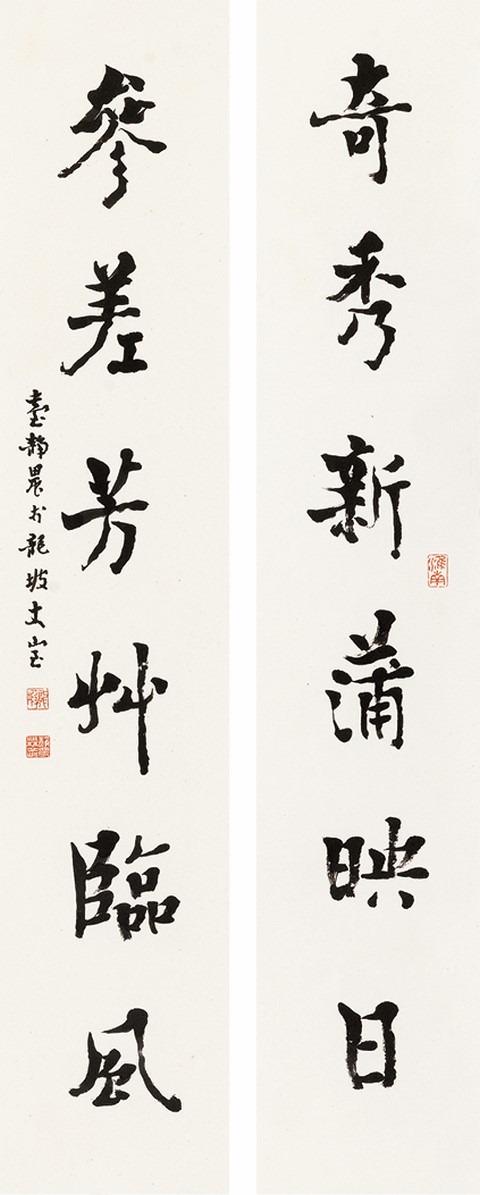 奇秀新蒲映日
淮南
參差芳艸臨風
臺靜農於龍坡丈室